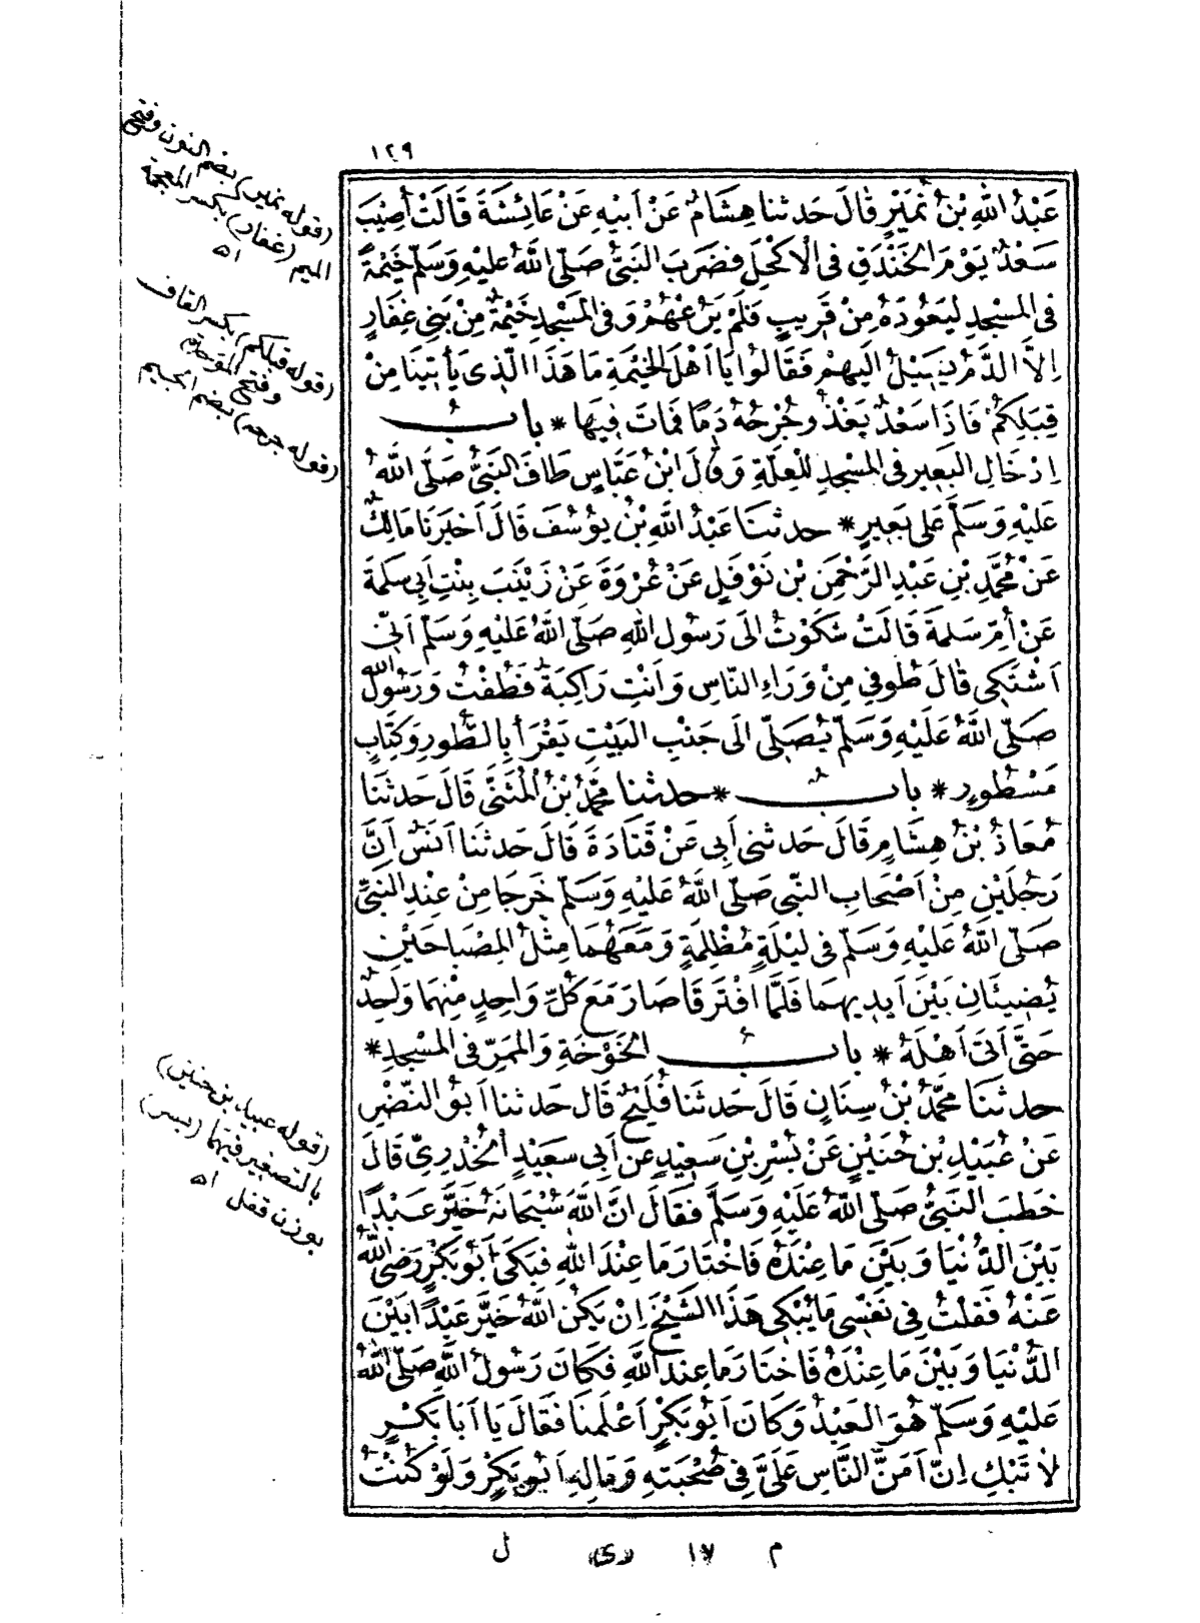 ١٢٩
عَبْدُ اللهِ بْنُ نُمَيْرٍ قَالَ حَدثنا هِشَامٌ عَنْ أَبِيهِ عَنْ عَائِشَةَ قَالَتْ أُصِيبَ
سَعْدٌ يَوْمَ الخَنْدَقِ فِى الْاَكْحَلِ فَضَرَبَ النَّبِىُّ صَلَّى اللهُ عَلَيْهِ وَسَلَّمَ خَيْمَةً
فِى المَسْجِدِ لِيَعُودَهُ مِنْ قَرِيبٍ فَلَمْ يَرُعْهُمْ وَفِى المَسْجِدِ خَيْمَةٌ مِنْ بَنِى غِفَارٍ
اِلاَّ الدَّمُ يَسِيلُ اِلَيهِمْ فَقَالُوا يَا اَهْلَ الخَيْمَةِ مَا هَذَا الَّذِى يَأْتِينَا مِنْ
قِبَلِكُمْ فَاِذَا سَعْدٌ يَغْذُو جُرْحُهُ دَمًا فَمَاتَ فِيهَا * بابُ
اِدْخَالِ البَعِيرِ فى المَسْجِدِ لِلْعِلَّةِ وَقَالَ ابْنُ عَبَّاسٍ طَافَ النَّبِىُّ صَلَّى اللهُ
عَلَيْهِ وَسَلَّمَ عَلَى بَعِيرٍ * حدثنَا عَبْدُ اللهِ بْنُ يُوسُفَ قَالَ اَخْبَرَنَا مَالِكٌ
عَنْ مُحَمَّدِ بْنِ عَبْدِ الرَّحْمٰنِ بْنِ نَوْفَلٍ عَنْ عُرْوَةَ عَنْ زَيْنَبَ بِنْتِ اَبِى سَلَمَةَ
عَنْ اُمِّ سَلَمَةَ قَالَتْ شَكَوْتُ اِلَى رَسُولِ اللهِ صَلَّى اللهُ عَلَيْهِ وَسَلَّمَ اَنِّى
اَشْتَكِى قَالَ طُوفِى مِنْ وَرَاءِ النَّاسِ وَاَنْتِ رَاكِبَةٌ فَطُفْتُ وَرَسُولُ اللهِ
صَلَّى اللهُ عَلَيْهِ وَسَلَّمَ يُصَلِّى اِلَى جَنْبِ البَيْتِ يَقْرَأُ بِالطُّورِ وَكِتَابٍ
مَسْطُورٍ * بابٌ * حدثنا مُحَمَّدُ بْنُ الْمُثَنَّى قَالَ حَدثنَا
مُعَاذُ بْنُ هِشَامٍ قَالَ حَدثنى أَبِى عَنْ قَتَادَةَ قَالَ حَدثنَا اَنَسٌ اَنَّ
رَجُلَيْنِ مِنْ اَصْحَابِ النَّبِى صَلَّى اللهُ عَلَيْهِ وَسَلَّمَ خَرَجَا مِنْ عِنْدِ النَّبِىِّ
صَلَّى اللهُ عَلَيْهِ وَسَلَّمَ فى لَيْلَةٍ مُظْلِمَةٍ وَمَعَهُمَا مِثْلُ المِصْبَاحَيْنِ
يُضِيئَانِ بَيْنَ اَيدِيهِمَا فَلَمَّا افْتَرَقَا صَارَ مَعَ كُلِّ وَاحِدٍ مِنْهُمَا وَاحِدٌ
حَتَّى اَتَى اَهْلَهُ * بابُ الخَوْخَةِ وَالمَمَرِّ فى المَسْجِدِ *
حدثنَا مُحَمَّدُ بْنُ سِنَانٍ قَالَ حَدثَنَا فُلَيْحٌ قَال حَدثنا اَبُو النَّضْرِ
عَنْ عُبَيْدِ بْنِ حُنَيْنٍ عَنْ بُسْرِ بْنِ سَعِيدٍ عَنْ اَبِى سَعِيدٍ الْخُدْرِىِّ قَالَ
خَطَبَ النَّبِىُّ صَلَّى اللهُ عَلَيْهِ وَسَلَّمَ فَقَالَ اِنَّ اللهَ سُبْحَانَهُ خَيَّرَ عَبْدًا
بَيْنَ الدُّنْيَا وَبَيْنَ مَا عِنْدَهُ فَاخْتَارَ مَا عِنْدَ اللهِ فَبَكَى اَبُو بَكْرٍ رَضِىَ اللهُ
عَنْهُ فَقُلْتُ فِى نَفْسِى مَا يُبْكِى هَذَا الشَّيْخَ اِنْ يَكُنِ اللهُ خَيَّرَ عَبْدًا بَيْنَ
الدُّنْيَا وَبَيْنَ مَا عِنْدَهُ فَاخْتَارَ مَا عِنْدَ اللهِ فَكَانَ رَسُولُ اللهِ صَلَّى اللهُ
عَلَيْهِ وَسَلَّمَ هُوَ العَبْدُ وَكَانَ اَبُو بَكْرٍ اَعْلَمَنَا فَقَالَ يَا اَبَا بَكْرٍ
لاَ تَبْكِ اِنَّ اَمَنَّ النَّاسِ عَلَىَّ فِى صُحْبَتِهِ وَمَالِهِ اَبُو بَكْرٍ وَلَوْ كُنْتُ
(قوله نمير) بضم النون وفتح
الميم (غفار) بكسر المعجمة
اه
(قوله قبلكم) بكسر القاف
وفتح الموحدة
(قوله جرحه) بضم الجيم
(قوله عبيد بن حنين)
بالتصغير فيهما (بسر)
بوزن قفل اه
م ١٧ (ى) ل